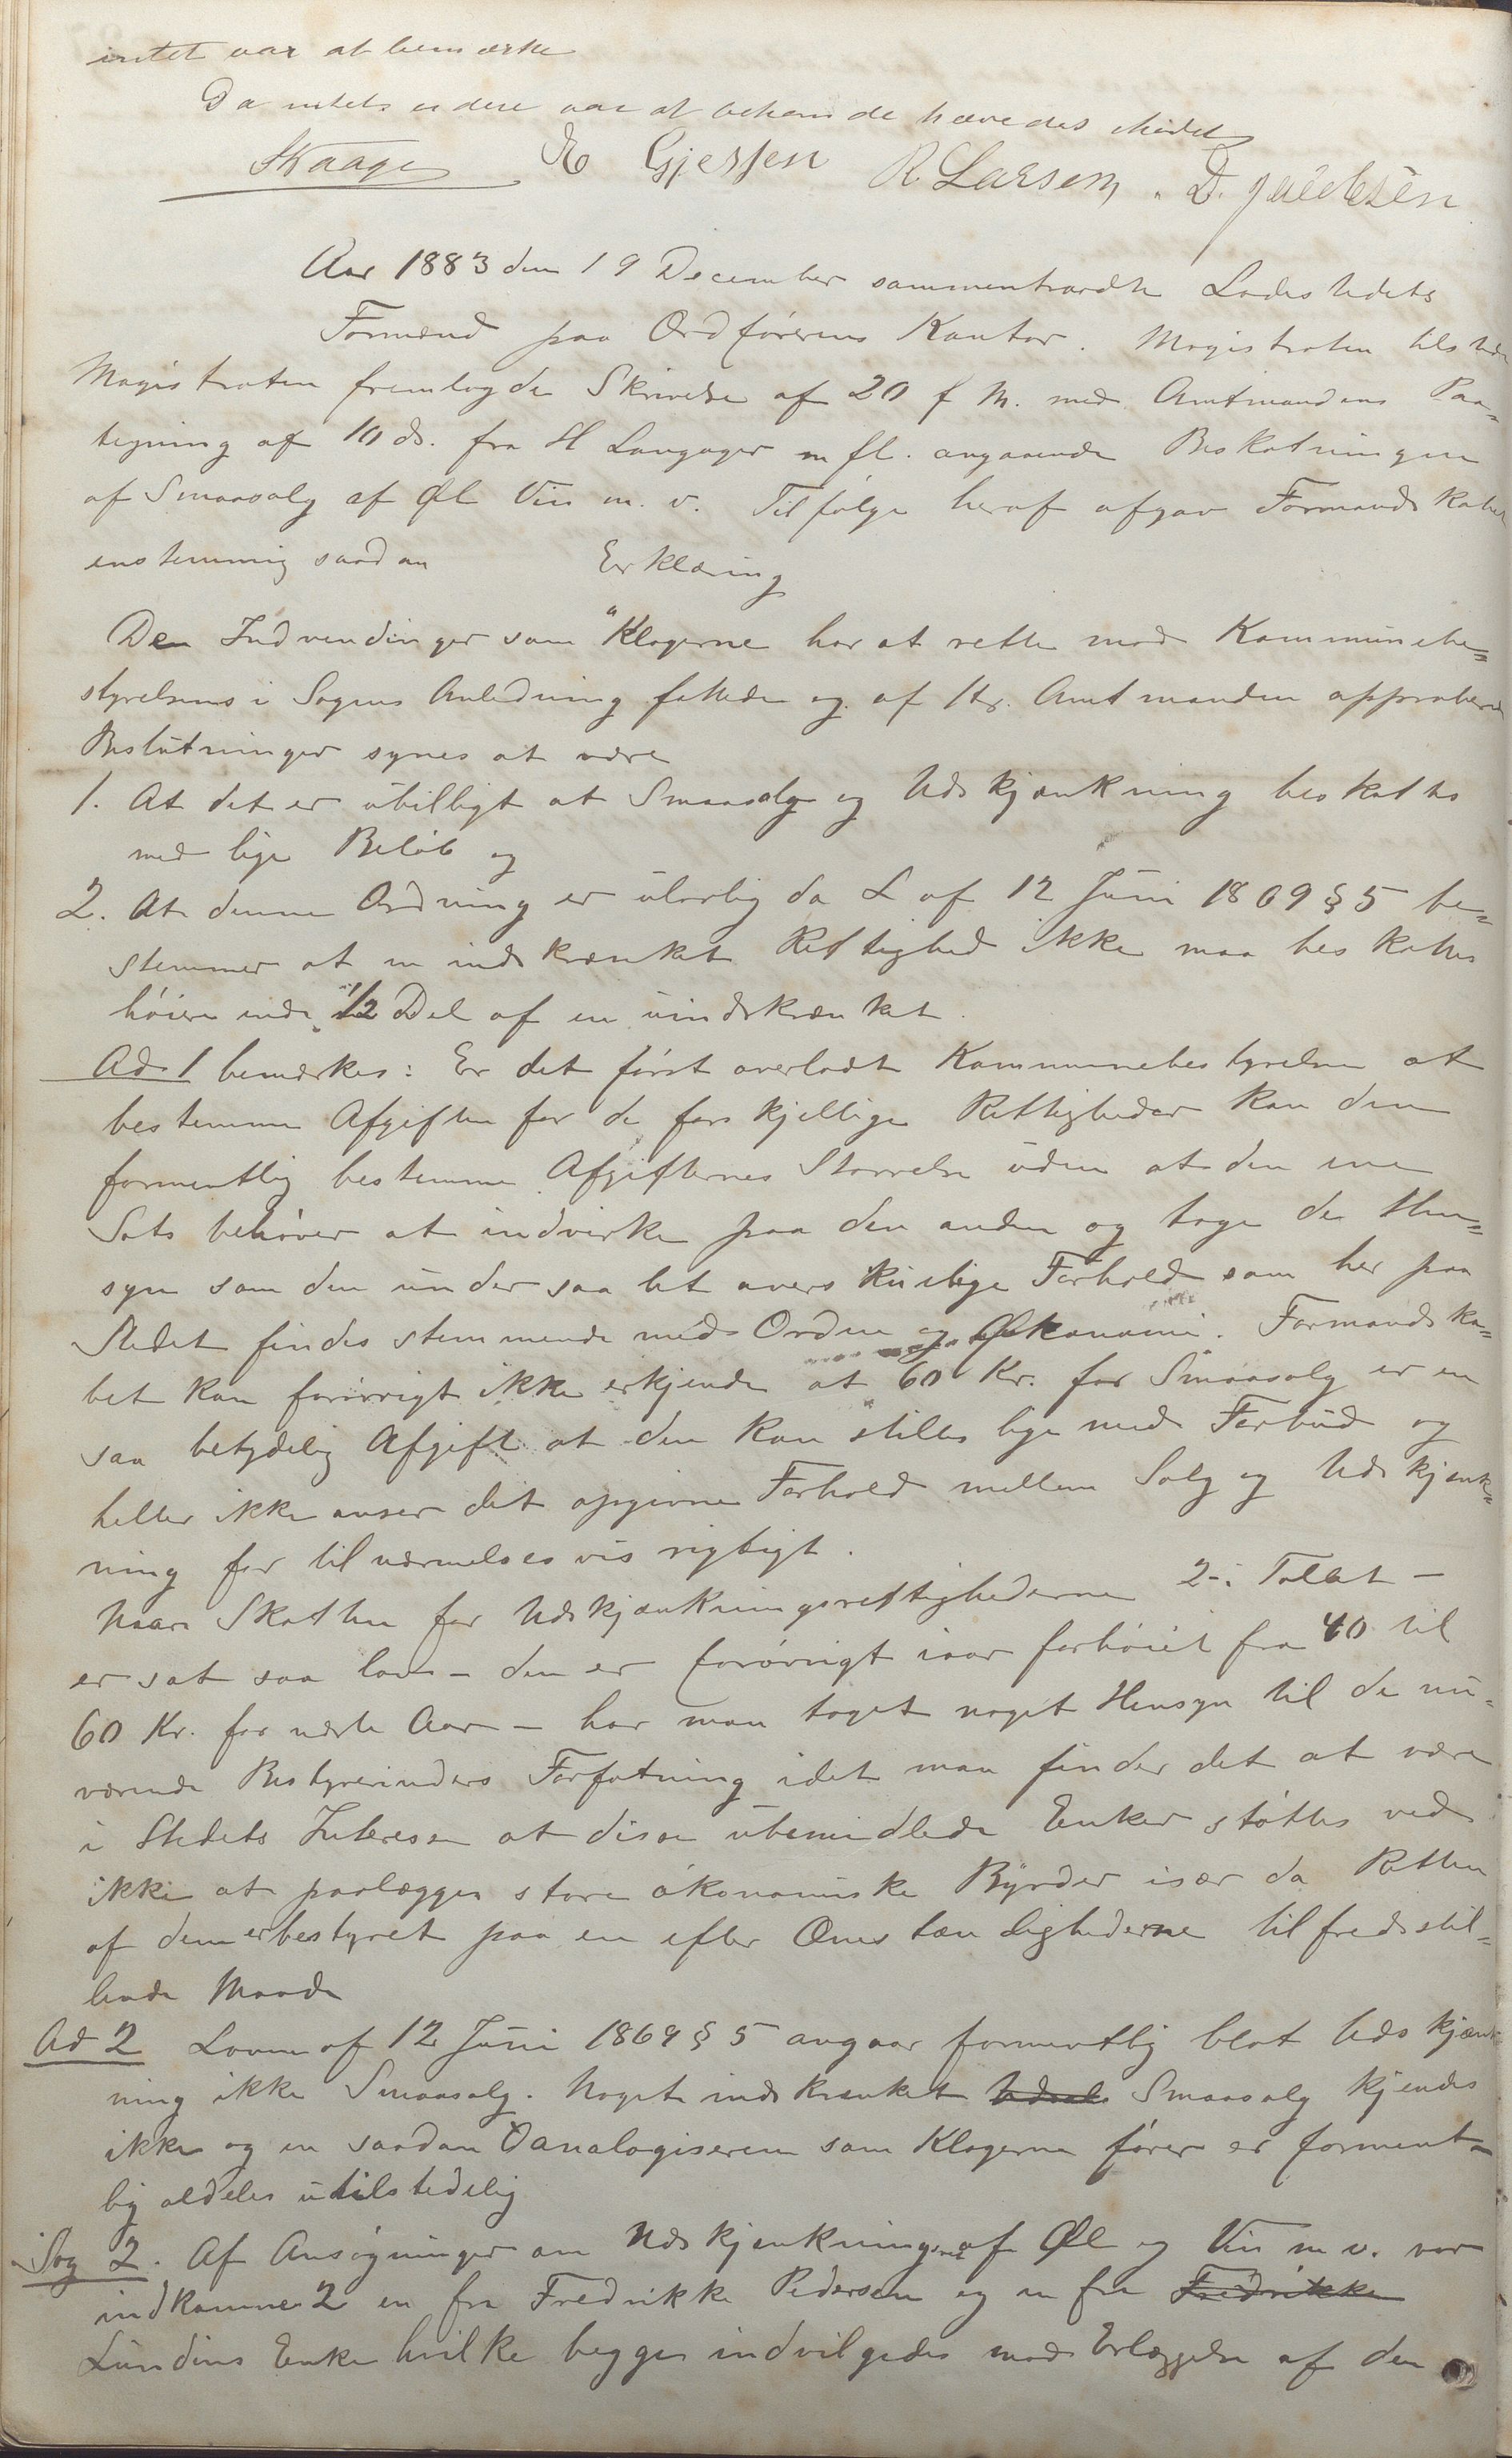 intet var at bemærke
Da intet videre var at behandle hævedes Mødet
Skaage E Gjessen R. Larsen, D. Jacobsen
Aar 1883 den 19 December sammentraadte Ladestedets
Formænd paa Ordførerens Kontor. Magistraten tilstede
Magistraten fremlagde Skrivelse af 20 f M. med Amtmandens Paa=
tegning af 10 ds. fra H Langager m fl. angaaende Beskatningen
af Smaasalg af Øl Vin m. v. Tilfølge heraf afgav Formandskabet
enstemmig saadan Erklæring
Den Indvendinger som Klagerne har at rette mod Kommunebe=
styrelsens i Sagens Anledning fattede og af Hr. Amtmanden approberede
Beslutninger synes at være
1. At det er ubilligt at Smaasalg og Udskjænkning beskattes
med lige Beløb og
2. At denne Ordning er ulovlig da L af 12 Juni 1869 § 5 be=
stemmer at en indskrænket Rettighed ikke maa beskattes
høiere end 1/2 Del af en uindskrænket.
Ad 1 bemærkes: Er det først overladt Kommunebestyrelsen at
bestemme Afgiften for de forskjellige Rettigheder kan den
formentlig bestemme Afgifternes Størrelse uden at den ene
Sats behøver at indvirke paa den anden og tage de Hen=
syn som den under saa let overskuelige Forhold som her paa
Stedet findes stemmende med Orden og Økonomi. Formandska=
bet kan forøvrigt ikke erkjende at 60 Kr. for Smaasalg er en
saa betydelig Afgift at den kan stilles lige med Forbud og
heller ikke anser det opgivne Forhold mellem Salg og Udskjænk=
ning for tilnærmelsesvis rigtigt.
Naar Skatten for Udskjænkningsrettighederne 2 i Tallet –
er sat saa lav – den er forøvrigt iaar forhøiet fra 40 til
60 Kr. for næste Aar – har man taget noget Hensyn til de nu-
værende Bestyrerinders Forfatning idet man finder det at være
i Stedets Interesse at disse ubemidlede Enker støttes ved
ikke at paalægges store økonomiske Byrder især da Retten
af dem er bestyret paa en efter Omstændighederne tilfredsstil=
lende Maade
Ad 2 Loven af 12 Juni 1869 § 5 angaar formentlig blot Udskjænk=
ning ikke Smaasalg. Noget indskrænket Udsalg Smaasalg kjendes
ikke og en saadan analogiseren som Klagerne fører er forment=
lig aldeles utilstedelig
Sag 2. Af Ansøgninger om Udskjenkning af Øl og Vin m v. var
indkommen 2 en fra Fredrikke Pedersen og en fra Fredrikke
Lundins Enke hvilke begge indvilgedes mod Erlæggelse af den